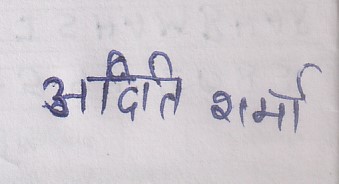 अदिति शर्मा